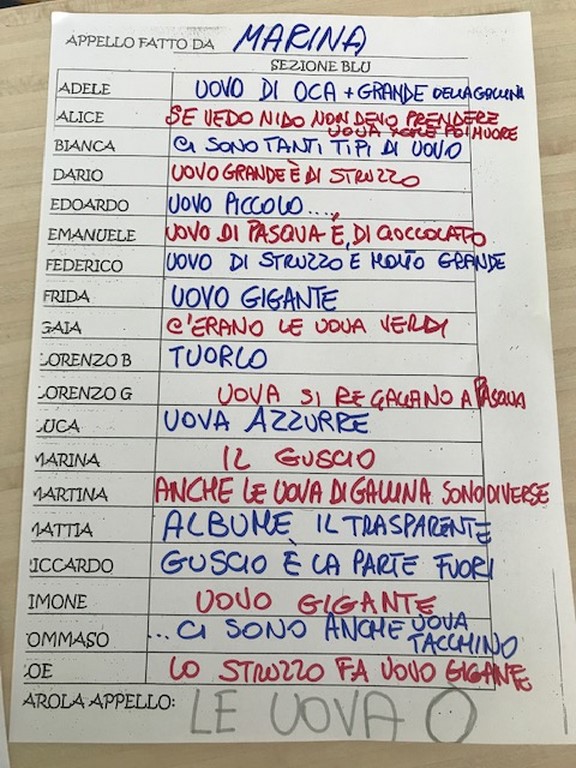 APPELLO FATTO DA MARINA
SEZIONE BLU
ADELE UOVO DI OCA + GRANDE DELLA GALLINA
ALICE SE VEDO NIDO NON DEVO PRENDERE
UOVA POI MUORE
BIANCA CI SONO TANTI TIPI DI UOVO
DARIO UOVO GRANDE È DI STRUZZO
EDOARDO UOVO PICCOLO....
EMANUELE UOVO DI PASQUA È DI CIOCCOLATO
FEDERICO UOVO DI STRUZZO È MOLTO GRANDE
FRIDA UOVO GIGANTE
GAIA C'ERANO LE UOVA VERDI
LORENZO B TUORLO
LORENZO G UOVA SI REGALANO A PASQUA
LUCA UOVA AZZURRE
MARINA IL GUSCIO
MARTINA ANCHE LE UOVA DI GALLINA SONO DIVERSE
MATTIA ALBUME IL TRASPARENTE
RICCARDO GUSCIO È LA PARTE FUORI
IMONE UOVO GIGANTE
OMMASO ...CI SONO ANCHE UOVA
TACCHINO
OE LO STRUZZO FA UOVO GIGANTE
AROLA APPELLO: LE UOVA